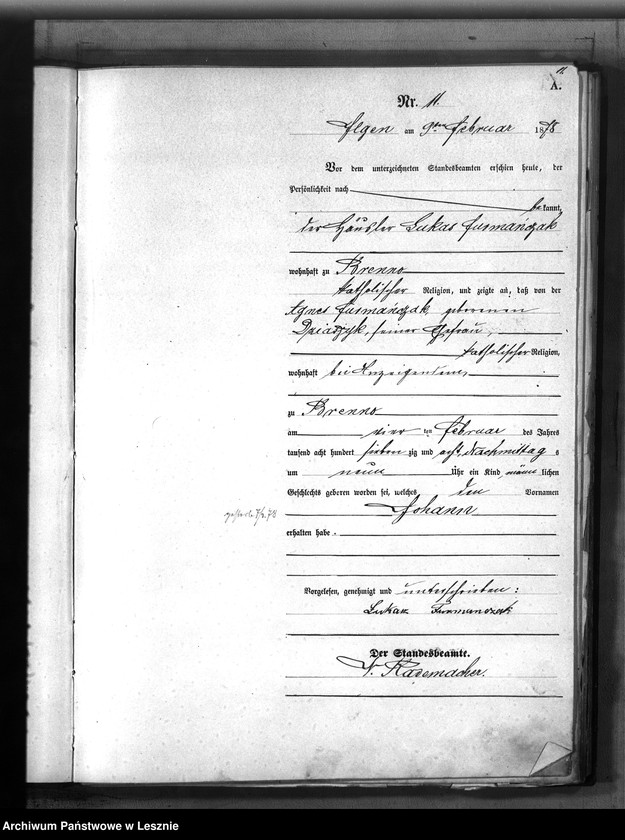 11.
A.
Nr. 11.
Ilgen am 9ten Februar 1878
Vor dem unterzeichneten Standesbeamten erschien heute, der
Persönlichkeit nach
be kannt,
der Häusler Lukas Furmańczak
wohnhaft zu Brenno
katholischer Religion, und zeigte an, daß von der
Agnes Furmańczak, geborenen
seiner Ehefrau
katholischer Religion,
wohnhaft bei Anzeigendem,
zu Brenno
am vier ten Februar des Jahres
tausend acht hundert sieben zig und acht, Nachmittag s
um neun Uhr ein Kind männ lichen
Geschlechts geboren worden sei, welches den Vornamen
Johann
erhalten habe.
Vorgelesen, genehmigt und unterschrieben:
Lukaz Furmanczak
Der Standesbeamte.
Rademacher.
Archiwum Państwowe w Lesznie